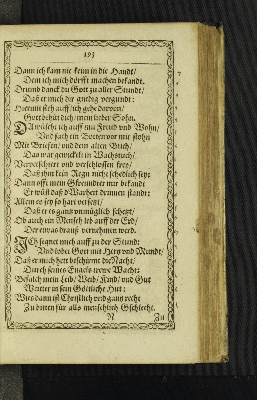 193
Dann ich kam nie keim in die Handt/
Dem ich mich dörfft machen bekandt.
Drumb danck du Gott zu aller Stundt/
Daß er mich dir guetig vergundt:
Hiermit steh auff/ ich gehe darvon/
Gott behüt dich/ mein lieber Sohn.
wischt ich auff mit Freud und Wohn/
Und sach ein Botten vor mir stohn
Mit Brieffen/ und dem alten Buch/
Das war gewickelt in Wachstuch/
Verpetschiert und verschlossen frey/
Daß ihm kein Regn nicht schedlich sey:
Dann offt mein Gfreundter mir bekandt
Er wöll daß d'Warheit drinnen standt:
Allein es sey so hart versetzt/
Daß er es gantz unmüglich schetzt/
Ob auch ein Mensch leb auff der Erd/
Der etwas drauß vernehmen werd.
ICh segnet mich auff zu der Stund:
Und lobet Gott mit Hertz und Mundt/
Daß er mich hett beschirmt die Nacht/
Durch seines Engels trewe Wacht:
Befalch mein Leib/ Weib/ Kind/ und Gut
Weitter in sein Göttliche Hut:
Wies dann ist Christlich und gantz recht
Zu bitten für alls menschlich Gschlecht.
N
Zu